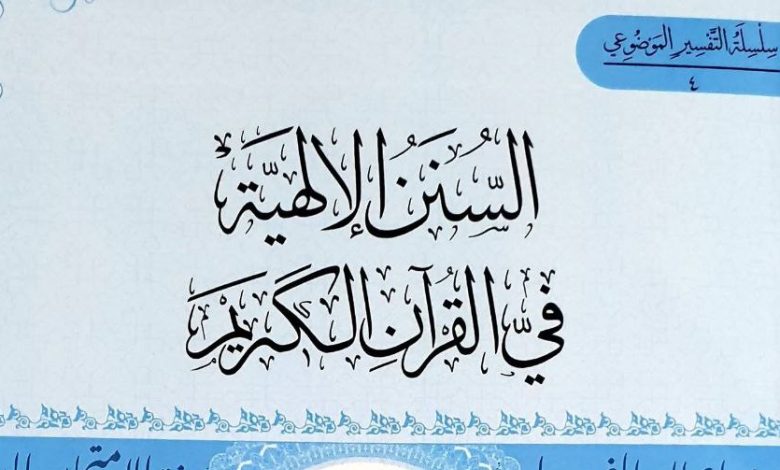 سِلْسِلَةُ التَّفْسِيرِ المَوْضُوعِي
٤
السُّنَنُ الإِلٰهِيَّةُ
فِي القُرْآنِ الكَرِيمِ